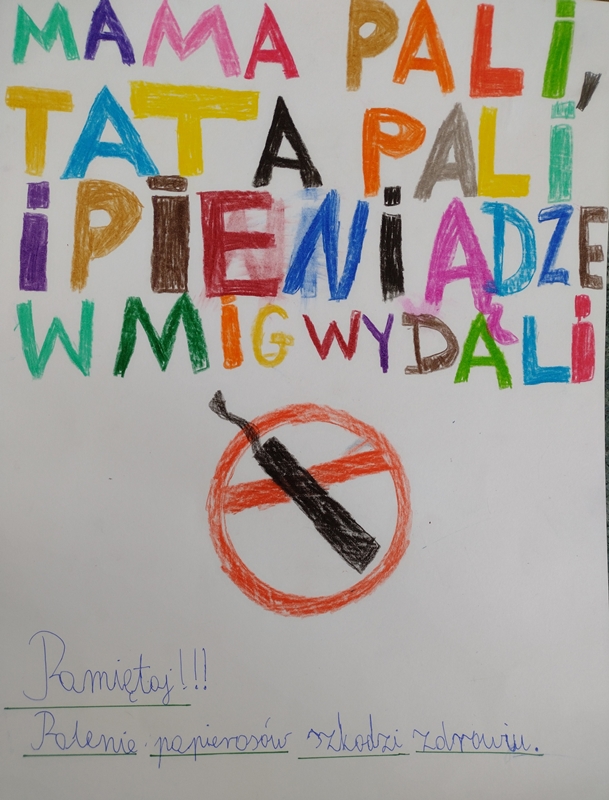 MAMA PALI,
TATA PALI
I PIENIĄDZE
W MIG WYDALI
Pamiętaj!!!
Palenie papierosów szkodzi zdrowiu.